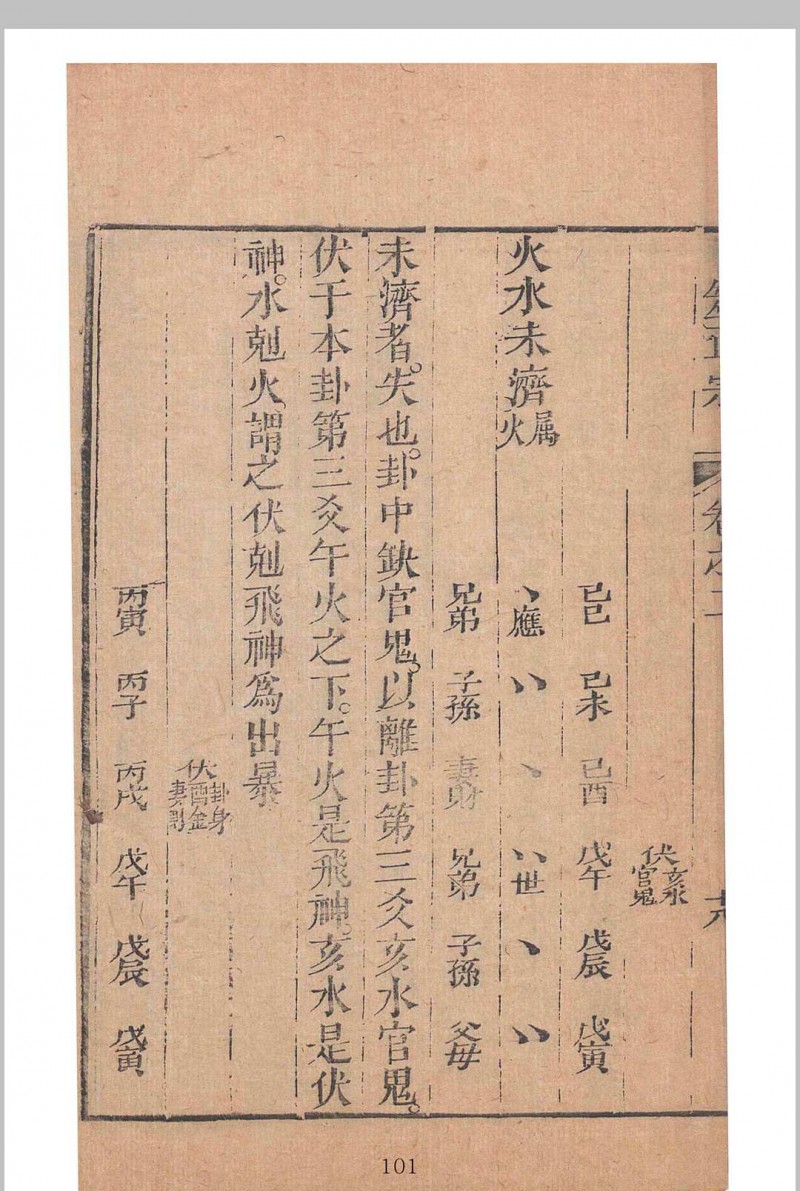 卷之二
十八
伏亥水官鬼
己巳 己未 己酉 戊午 戊辰 戊寅
火水未濟 属火 、應 、、 、 、、世 、 、、
兄弟 子孫 妻財 兄弟 子孫 父母
未濟者。失也。卦中缺官鬼。以離卦第三爻亥水官鬼。
伏于本卦第三爻午火之下。午火是飛神。亥水是伏
神。水剋火。謂之伏剋飛神爲出暴
伏卦身酉金妻財
丙寅 丙子 丙戌 戊午 戊辰 戊寅
101